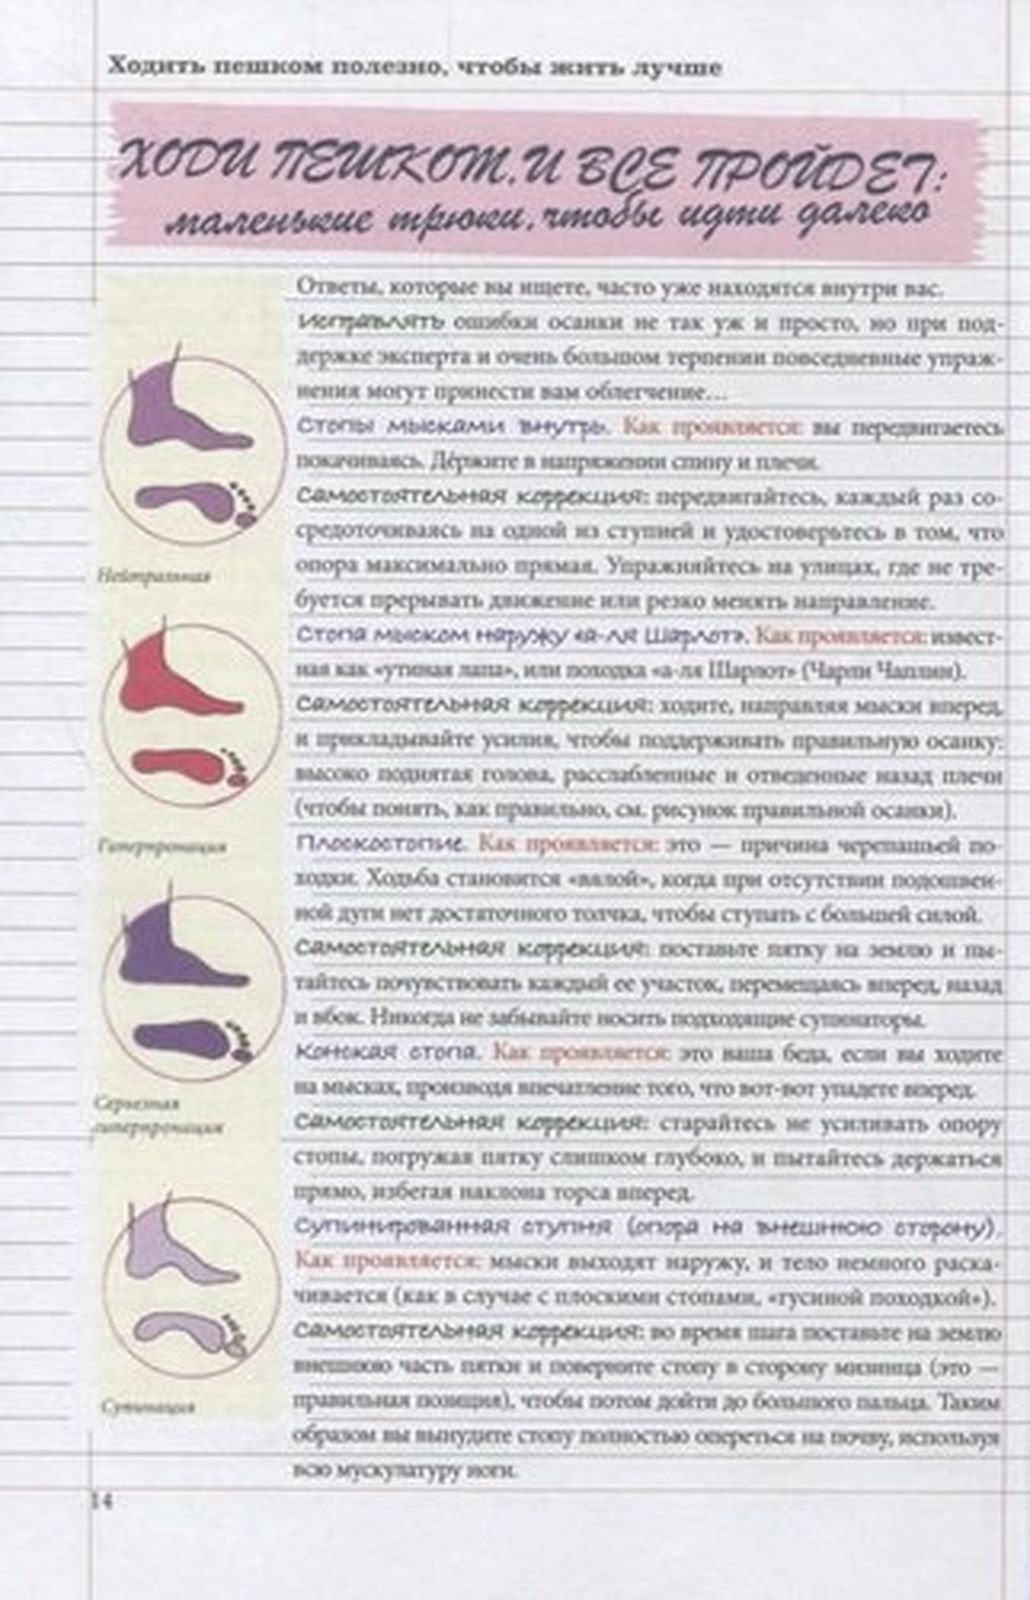 Ходить пешком полезно, чтобы жить лучше
ХОДИ ПЕШКОМ, И ВСЕ ПРОЙДЕТ:
маленькие трюки, чтобы идти далеко
Ответы, которые вы ищете, часто уже находятся внутри вас.
Исправлять ошибки осанки не так уж и просто, но при под-
держке эксперта и очень большом терпении повседневные упраж-
нения могут принести вам облегчение...
Стопы мысками внутрь. Как проявляется: вы передвигаетесь
покачиваясь. Держите в напряжении спину и плечи.
Самостоятельная коррекция: передвигайтесь, каждый раз со-
средоточиваясь на одной из ступней и удостоверьтесь в том, что
опора максимально прямая. Упражняйтесь на улицах, где не тре-
буется прерывать движение или резко менять направление.
Стопа мыском наружу «а-ля Шарлот». Как проявляется: извест-
ная как «утиная лапа», или походка «а-ля Шарлот» (Чарли Чаплин).
Самостоятельная коррекция: ходите, направляя мыски вперед,
и прикладывайте усилия, чтобы поддерживать правильную осанку:
высоко поднятая голова, расслабленные и отведенные назад плечи
(чтобы понять, как правильно, см. рисунок правильной осанки).
Плоскостопие. Как проявляется: это — причина черепашьей по-
ходки. Ходьба становится «вялой», когда при отсутствии подошвен-
ной дуги нет достаточного толчка, чтобы ступать с большей силой.
Самостоятельная коррекция: поставьте пятку на землю и пы-
тайтесь почувствовать каждый ее участок, перемещаясь вперед, назад
и вбок. Никогда не забывайте носить подходящие супинаторы.
Конская стопа. Как проявляется: это ваша беда, если вы ходите
на мысках, производя впечатление того, что вот-вот упадете вперед.
Самостоятельная коррекция: старайтесь не усиливать опору
стопы, погружая пятку слишком глубоко, и пытайтесь держаться
прямо, избегая наклона торса вперед.
Супинированная ступня (опора на внешнюю сторону).
Как проявляется: мыски выходят наружу, и тело немного раска-
чивается (как в случае с плоскими стопами, «гусиной походкой»).
Самостоятельная коррекция: во время шага поставьте на землю
внешнюю часть пятки и поверните стопу в сторону мизинца (это —
правильная позиция), чтобы потом дойти до большого пальца. Таким
образом вы вынудите стопу полностью опереться на почву, используя
всю мускулатуру ноги.
Нейтральная
Гиперпронация
Серьезная
гиперпронация
Супинация
14